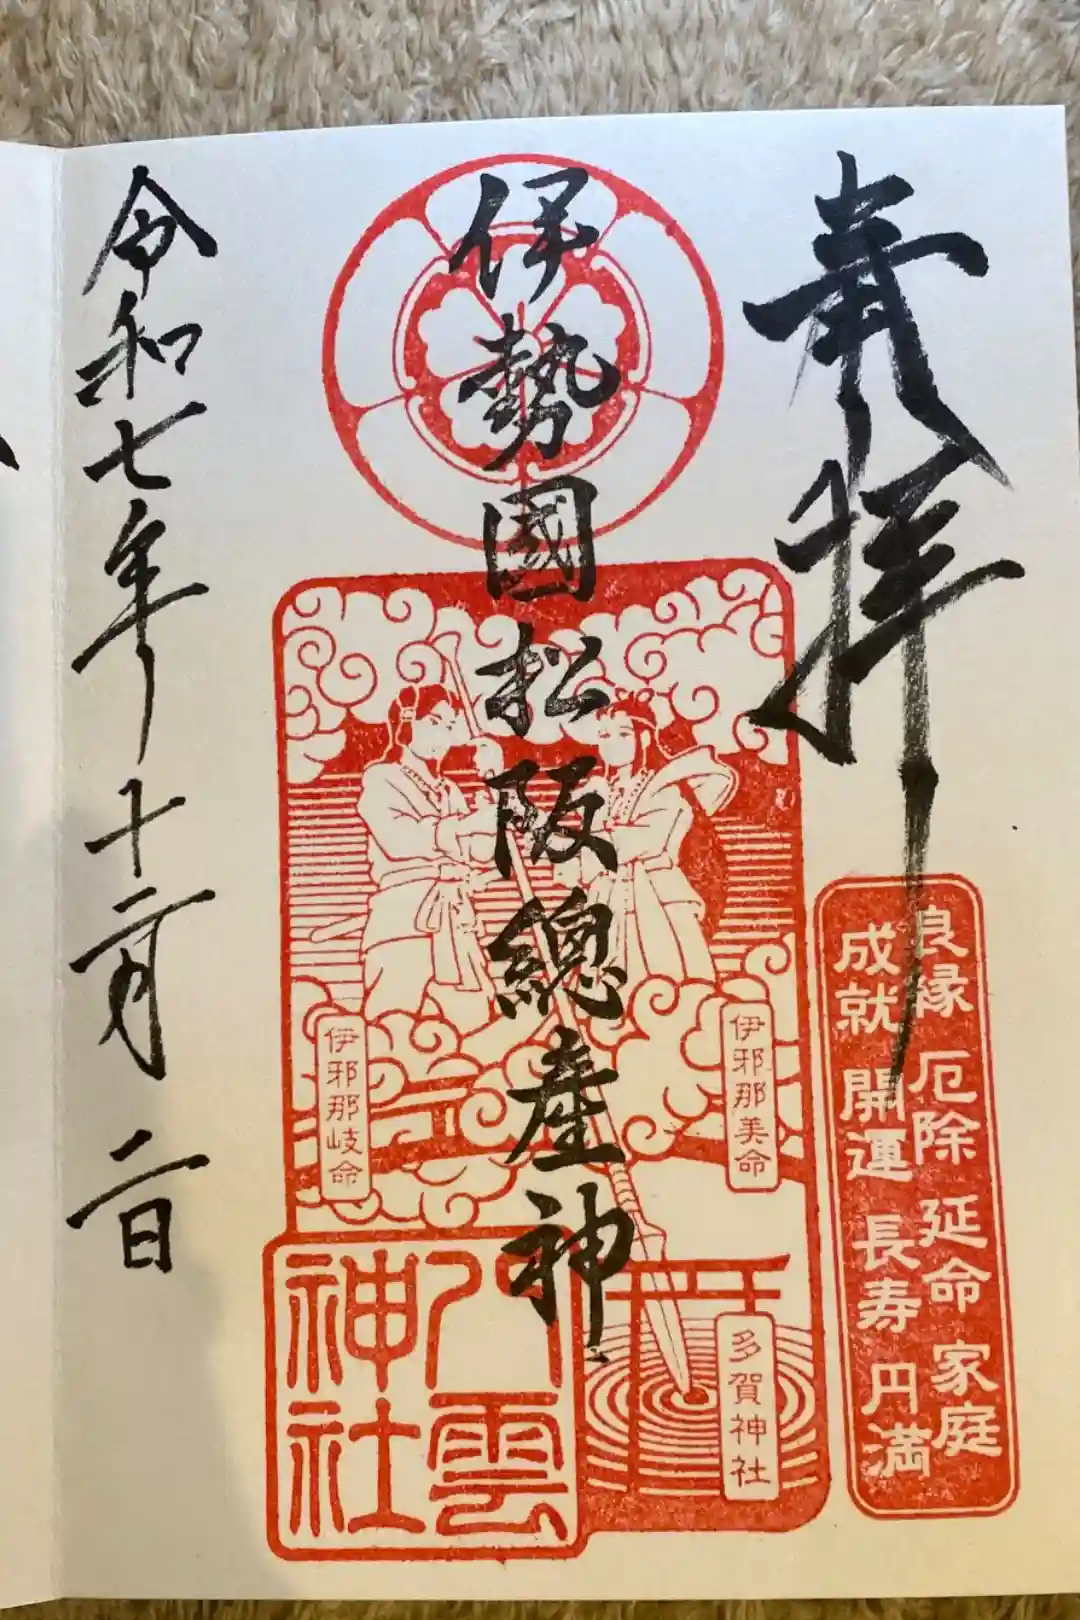 奉拝
良縁 厄除 延命 家庭
成就 開運 長寿 円満
伊勢國松阪總産神
伊邪那美命
伊邪那岐命
多賀神社
八雲
神社
令和七年十二月二日